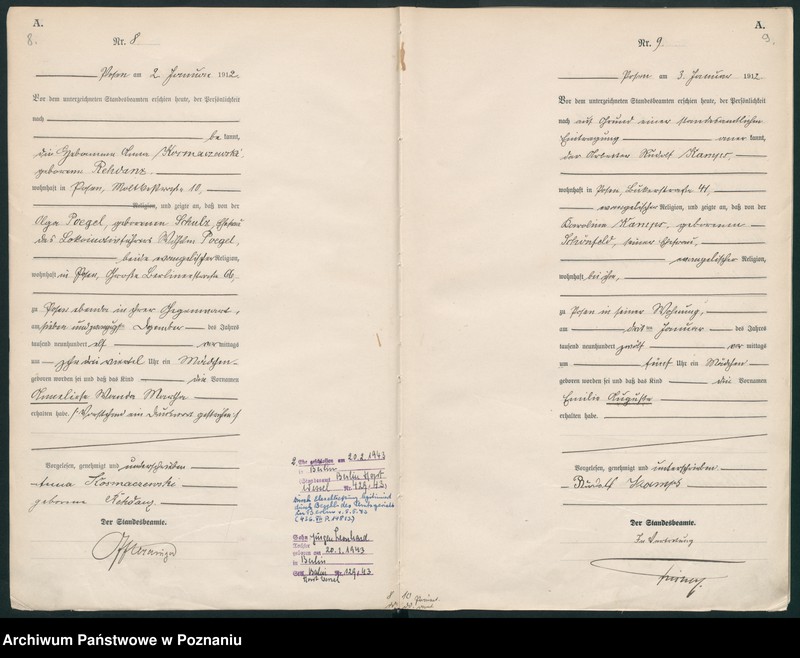 A.
8.
Nr. 8
Posen am 2. Januar 1912.
Vor dem unterzeichneten Standesbeamten erschien heute, der Persönlichkeit
nach
be kannt,
die Hebamme Anna Kosmaczewski
geborene Rehdanz
wohnhaft in Posen, Moltkestraße 10,
Religion, und zeigte an, daß von der
Olga Poegel, geborenen Schulz, Ehefrau
des Lokomotivführers Wilhelm Poegel,
beide evangelischer Religion,
wohnhaft in Posen, Große Berlinerstraße
zu Posen ebenda in ihrer Gegenwart,
am sieben und zwanzigsten Dezember des Jahres
tausend neunhundert elf vor mittags
um zehn drei viertel Uhr ein Mädchen
geboren worden sei und daß das Kind die Vornamen
Anneliese Wanda Martha
erhalten habe. (Vorstehend ein Druckwort gestrichen)
Vorgelesen, genehmigt und unterschrieben
Anna Kosmaczewski
geborene Rehdanz
Der Standesbeamte.
2. Ehe geschlossen am 20.2.1943
in Berlin
(Standesamt Berlin Horst
Wessel Nr. 129/43)
Sohn Jürgen Leonhard
geboren am 20.1.1943
in Berlin
Berlin Nr. 129/43
Horst Wessel
A.
9.
Nr. 9.
Posen am 3. Januar 1912
Vor dem unterzeichneten Standesbeamten erschien heute, der Persönlichkeit
nach auf Grund einer standesamtlichen
Eintragung aner kannt,
der Arbeiter Rudolf Kamps,
wohnhaft in Posen, Bukerstraße 41,
evangelischer Religion, und zeigte an, daß von der
Karoline Kamps, geborenen
Schönfeld, seiner Ehefrau,
evangelischer Religion,
wohnhaft bei ihm,
zu Posen in seiner Wohnung,
am Januar des Jahres
tausend neunhundert zwölf vor mittags
um fünf Uhr ein Mädchen
geboren worden sei und daß das Kind die Vornamen
Emilie Auguste
erhalten habe.
Vorgelesen, genehmigt und unterschrieben
Rudolf Kamps
Der Standesbeamte.
In Vertretung
Archiwum Państwowe w Poznaniu